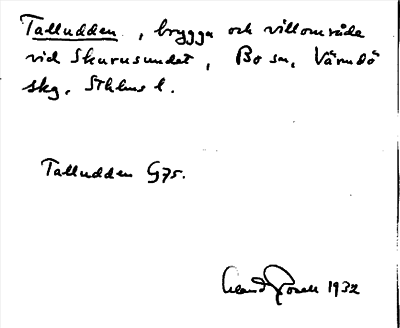 Talludden, brygga och villområde
vid Skurusundet, Bo sn, Värmdö
skg, Sthlms l.
Talludden G75.
1932